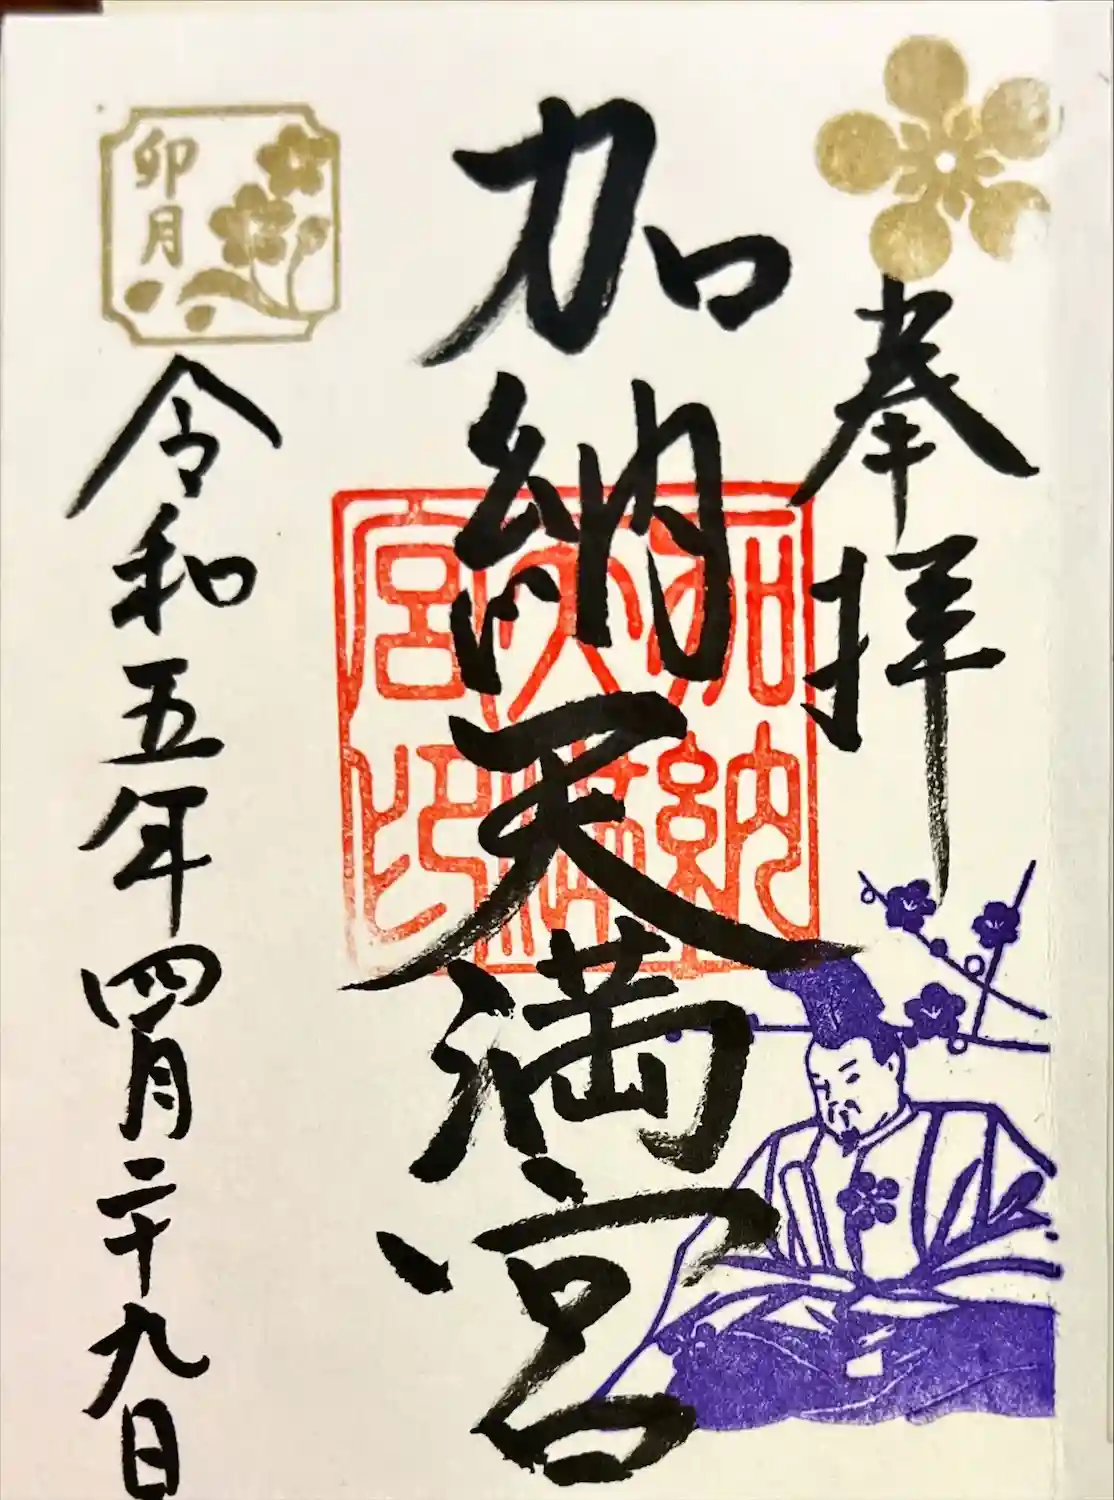 奉拝
加納天満宮
加納
天満
宮印
卯月
令和五年四月二十九日